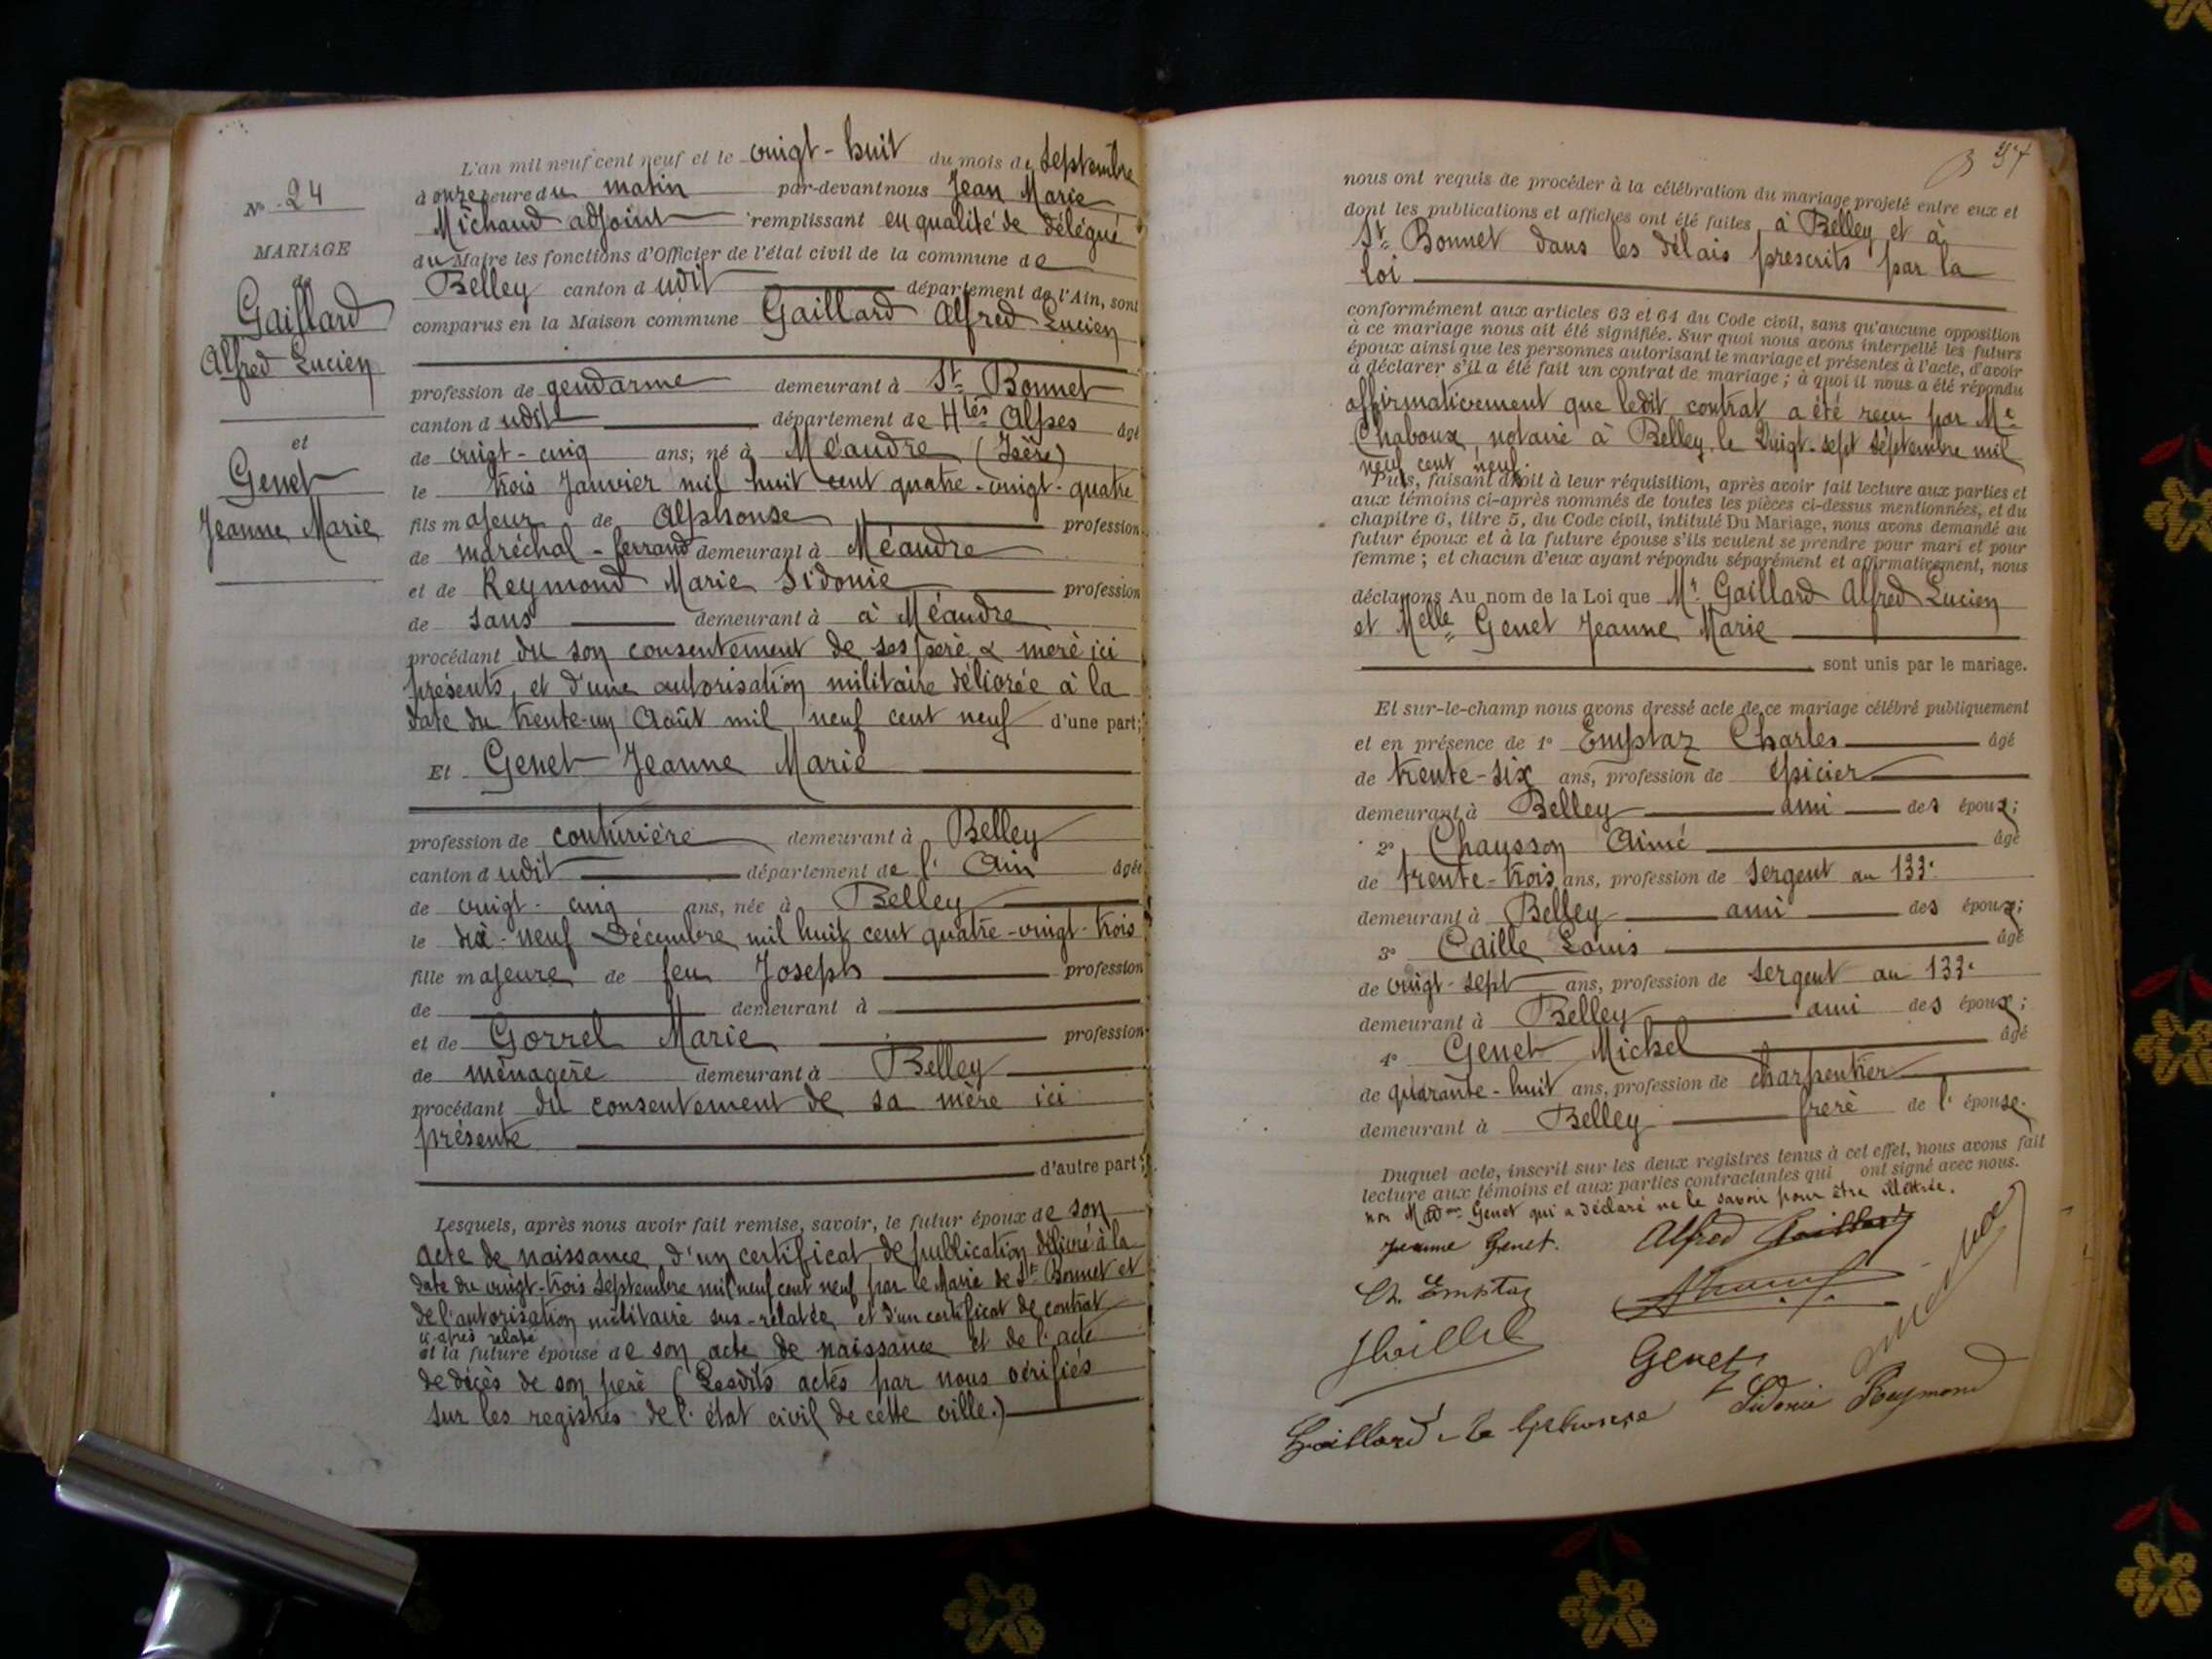 N° 24
MARIAGE
de
Gaillard
Alfred Lucien
et
Genet
Jeanne Marie
L'an mil neuf cent neuf et le vingt-huit du mois de Septembre
à onze heure du matin par-devant nous Jean Marie
Michaud adjoint remplissant en qualité de délégué
du Maire les fonctions d'Officier de l'état civil de la commune de
Belley canton d udit département de l'Ain, sont
comparus en la Maison commune Gaillard Alfred Lucien
profession de gendarme demeurant à St Bonnet
canton d udit département de Htes Alpes âgé
de vingt-cinq ans, né à Méaudre (Isère)
le trois Janvier mil huit cent quatre-vingt-quatre
fils majeur de Alphonse profession
de maréchal-ferrand demeurant à Méaudre
et de Reymond Marie Sidonie profession
de sans demeurant à à Méaudre
procédant du son consentement de ses père & mère ici
présents, et d'une autorisation militaire délivrée à la
date du trente-un Août mil neuf cent neuf d'une part;
Et Genet Jeanne Marie
profession de couturière demeurant à Belley
canton d udit département de l' Ain âgée
de vingt-cinq ans, née à Belley
le dix-neuf Décembre mil huit cent quatre-vingt-trois
fille majeure de feu Joseph profession
de demeurant à
et de Gorrel Marie profession
de ménagère demeurant à Belley
procédant du consentement de sa mère ici
présente
d'autre part;
Lesquels, après nous avoir fait remise, savoir, le futur époux de son
acte de naissance d'un certificat de publication délivré à la
date du vingt-trois Septembre mil neuf cent neuf par le Maire de St Bonnet et
de l'autorisation militaire sus-relatée, et d'un certificat de contrat
ci-après relaté
et la future épouse de son acte de naissance et de l'acte
de décès de son père (Lesdits actes par nous vérifiés
sur les registres de l'état civil de cette ville.)
37
nous ont requis de procéder à la célébration du mariage projeté entre eux et
dont les publications et affiches ont été faites à Belley et à
St Bonnet dans les délais prescrits par la
loi
conformément aux articles 63 et 64 du Code civil, sans qu'aucune opposition
à ce mariage nous ait été signifiée. Sur quoi nous avons interpellé les futurs
époux ainsi que les personnes autorisant le mariage et présentes à l'acte, d'avoir
à déclarer s'il a été fait un contrat de mariage; à quoi il nous a été répondu
affirmativement que ledit contrat a été reçu par Me
Chaboux, notaire à Belley le Vingt-sept Septembre mil
neuf cent neuf.
Puis, faisant droit à leur réquisition, après avoir fait lecture aux parties et
aux témoins ci-après nommés de toutes les pièces ci-dessus mentionnées, et du
chapitre 6, titre 5, du Code civil, intitulé Du Mariage, nous avons demandé au
futur époux et à la future épouse s'ils veulent se prendre pour mari et pour
femme; et chacun d'eux ayant répondu séparément et affirmativement, nous
déclarons Au nom de la Loi que Mr Gaillard Alfred Lucien
et Melle Genet Jeanne Marie
sont unis par le mariage.
Et sur-le-champ nous avons dressé acte de ce mariage célébré publiquement
et en présence de 1° Emptaz Charles âgé
de trente-six ans, profession de épicier
demeurant à Belley ami des époux;
2° Chausson Aimé âgé
de trente-trois ans, profession de Sergent au 133e
demeurant à Belley ami des époux;
3° Caille Louis âgé
de vingt-sept ans, profession de Sergent au 133e
demeurant à Belley ami des époux;
4° Genet Michel âgé
de quarante-huit ans, profession de charpentier
demeurant à Belley frère de l' épouse.
Duquel acte, inscrit sur les deux registres tenus à cet effet, nous avons fait
lecture aux témoins et aux parties contractantes qui ont signé avec nous.
non Madme Genet qui a déclaré ne le savoir pour être illettrée.
Jeanne Genet. Alfred Gaillard
Ch. Emptaz
Genet
Gaillard Alphonse Sidonie Reymond